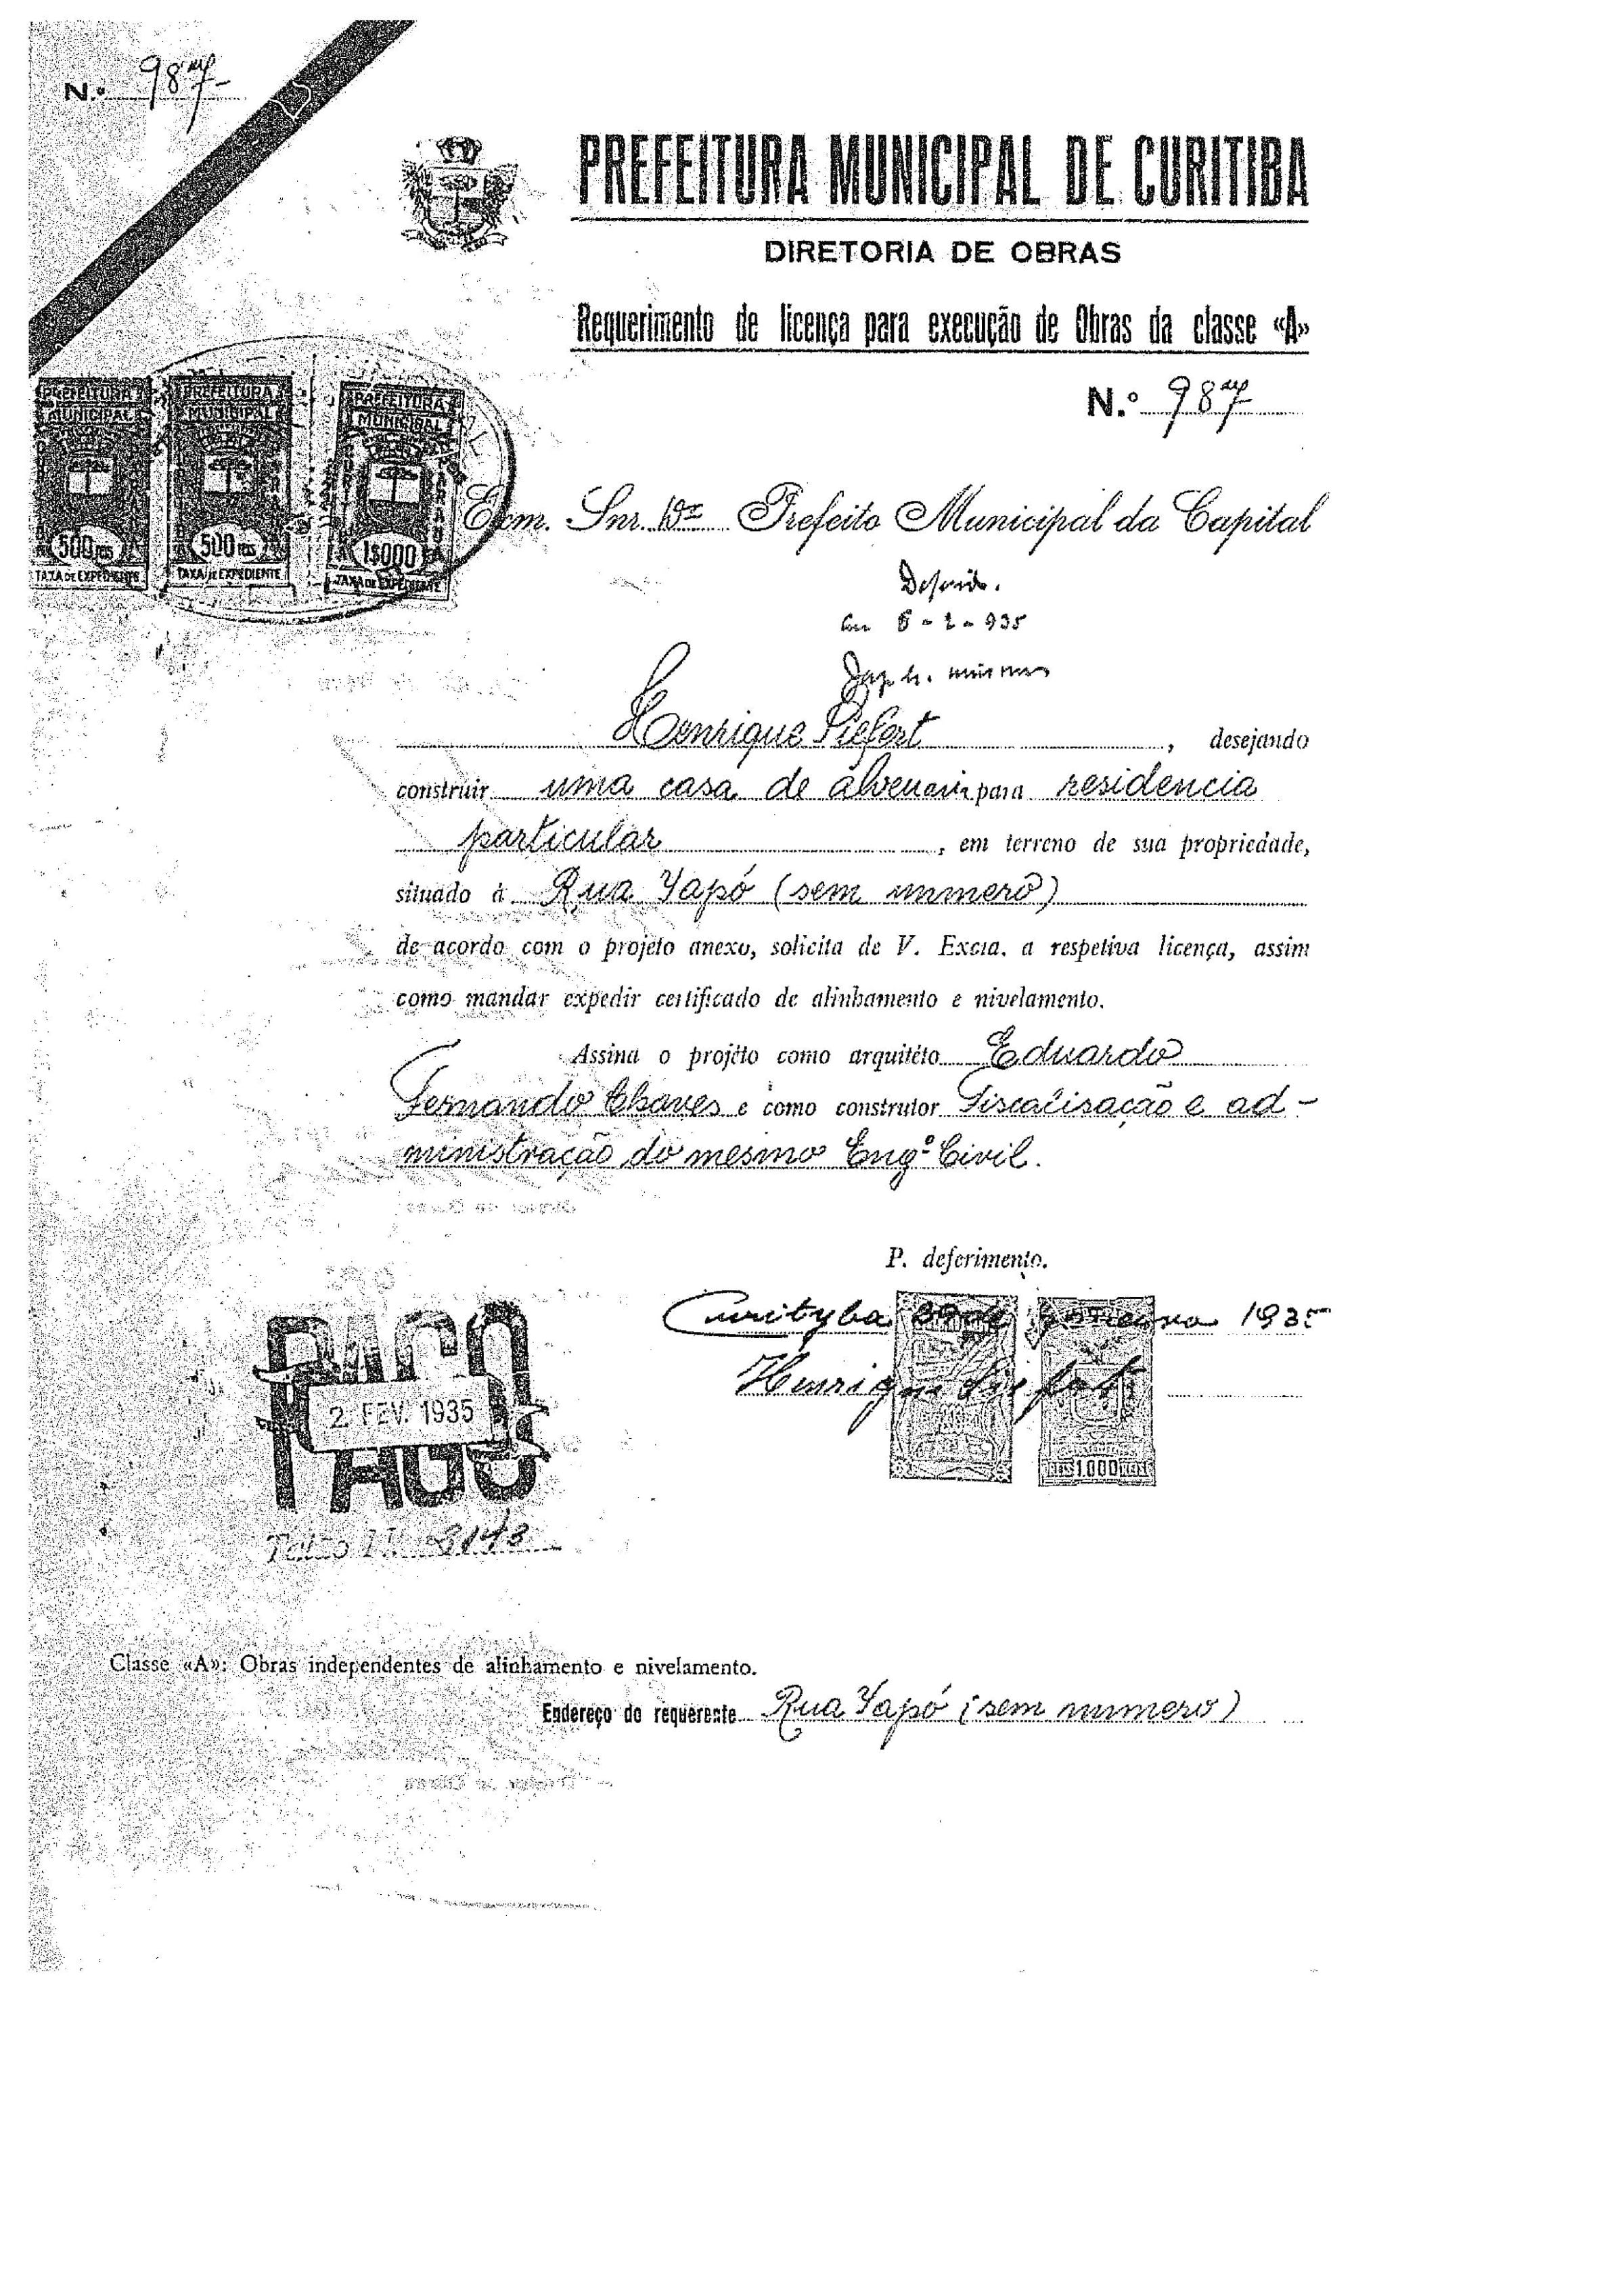 N.º 987
PREFEITURA MUNICIPAL DE CURITIBA
DIRETORIA DE OBRAS
Requerimento de licença para execução de Obras da classe «A»
N.º 987
PREFEITURA MUNICIPAL 500 REIS TAXA DE EXPEDIENTE
PREFEITURA MUNICIPAL 500 REIS TAXA DE EXPEDIENTE
PREFEITURA MUNICIPAL 1$000 TAXA DE EXPEDIENTE
Exm. Snr. Dr. Prefeito Municipal da Capital
935
Henrique , desejando
construir uma casa de alvenaria para residencia
particular , em terreno de sua propriedade,
situado à Rua Yapó (sem numero)
de acordo com o projeto anexo, solicita de V. Excia. a respetiva licença, assim
como mandar expedir certificado de alinhamento e nivelamento.
Assina o projéto como arquitéto Eduardo
Fernando Chaves e como construtor Fiscalisação e ad-
ministração do mesmo Engº Civil.
P. deferimento.
Curityba 1935
PAGO
2. FEV. 1935
PAGO
3143
REIS 1.000 REIS
Classe «A»: Obras independentes de alinhamento e nivelamento.
Endereço do requerente Rua Yapó (sem numero)